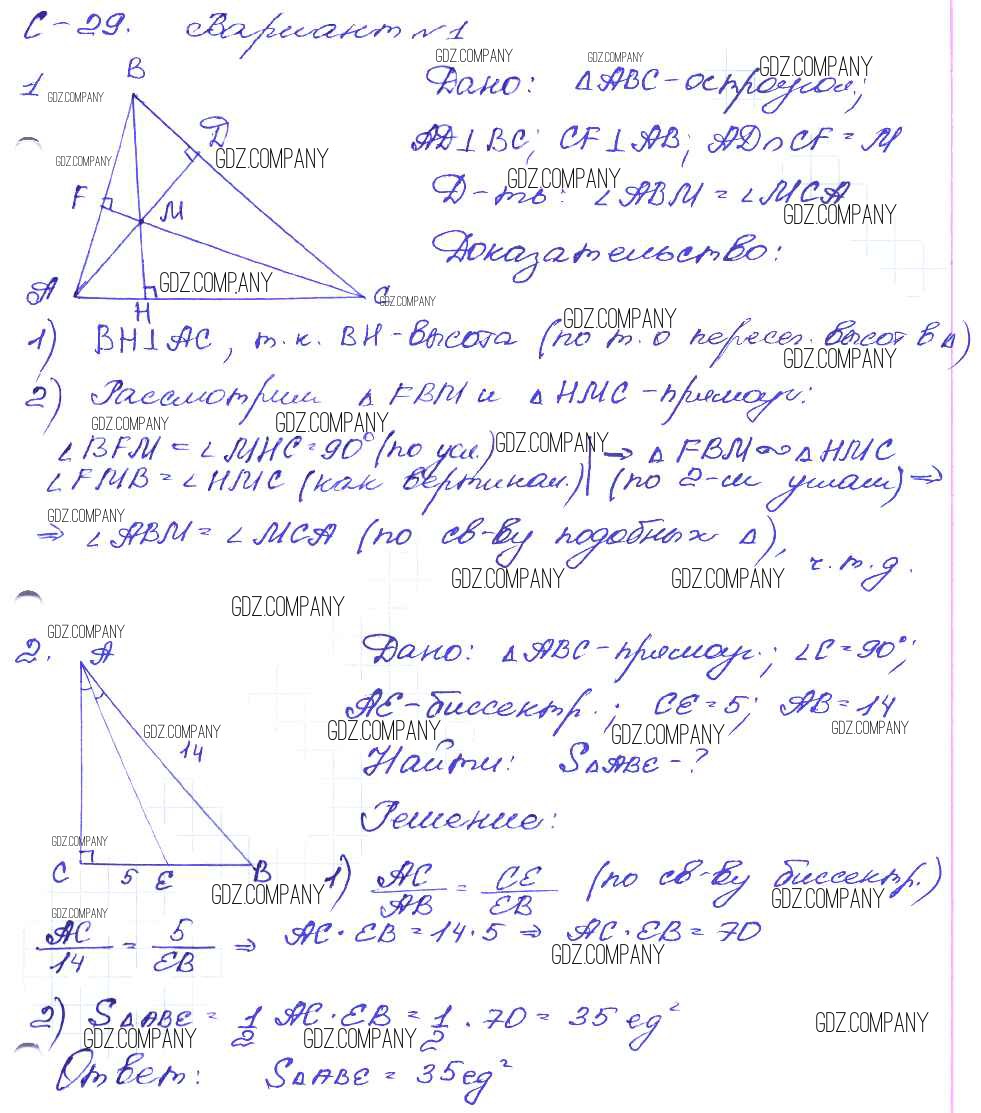 С-29. Вариант №1
1
B
D
F
M
A
H
C
Дано: △ABC-остроугол.;
AD⊥BC; CF⊥AB; AD∩CF=M
Д-ть: ∠ABM=∠MCA
Доказательство:
1) BH⊥AC, т.к. BH-высота (по т. о пересеч. высот в △)
2) Рассмотрим △FBM и △HMC-прямоуг:
∠BFM=∠MHC=90° (по усл.) | ⇒ △FBM∞△HMC
∠FMB=∠HMC (как вертикал.) | (по 2-м углам) ⇒
⇒ ∠ABM=∠MCA (по св-ву подобных △),
ч.т.д.
2.
A
14
C
5
E
B
Дано: △ABC-прямоуг.; ∠C=90°;
AE-биссектр.; CE=5; AB=14
Найти: S△ABE-?
Решение:
1) AC/AB = CE/EB (по св-ву биссектр.)
AC/14 = 5/EB ⇒ AC·EB=14·5 ⇒ AC·EB=70
2) S△ABE = 1/2 AC·EB = 1/2 · 70 = 35 ед²
Ответ: S△ABE = 35ед²
GDZ.COMPANY